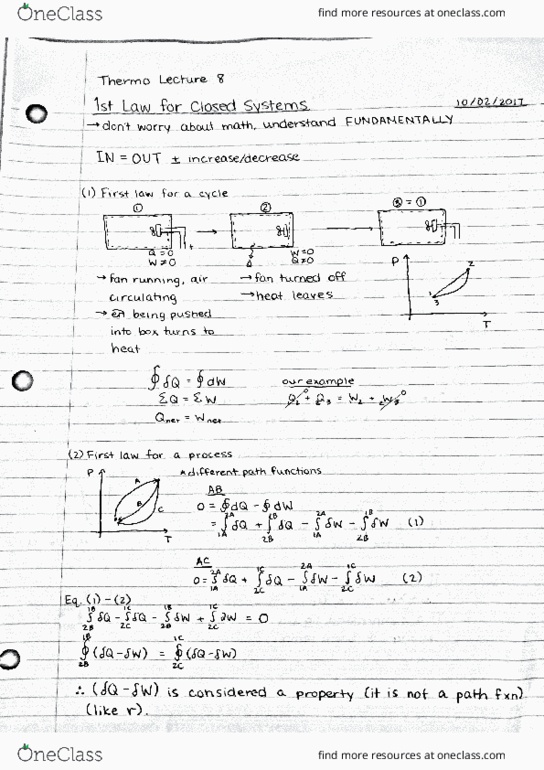 OneClass find more resources at oneclass.com
Thermo Lecture 8
1st Law for Closed Systems 10/02/2017
→ don't worry about math, understand FUNDAMENTALLY
IN = OUT ± increase/decrease
(1) First law for a cycle
① ② ③ = ①
Q = 0
W ≠ 0
W = 0
Q ≠ 0
P
2
1
3
T
→ fan running, air
circulating
→ being pushed
into box turns to
heat
→ fan turned off
→ heat leaves
∮ δQ = ∮ dW
ΣQ = ΣW
Qnet = Wnet
our example
(2) First law for a process
P
A
B
C
T
different path functions
AB
0 = ∮dQ - ∮dW
= ∫1A2A δQ + ∫2B1B δQ - ∫1A2A δW - ∫2B1B δW (1)
AC
0 = ∫1A2A δQ + ∫2C1C δQ - ∫1A2A δW - ∫2C1C δW (2)
Eq. (1) - (2)
∫2B1B δQ - ∫2C1C δQ - ∫2B1B δW + ∫2C1C ∂W = 0
∮2B1B (δQ - δW) = ∮2C1C (δQ - δW)
∴ (δQ - δW) is considered a property (it is not a path fxn)
(like v).
OneClass find more resources at oneclass.com